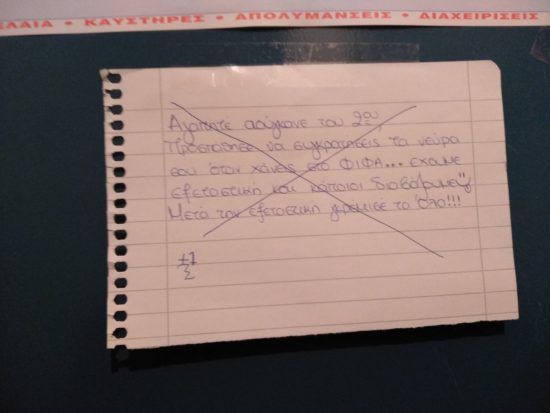 ΕΛΑΙΑ • ΚΑΥΣΤΗΡΕΣ • ΑΠΟΛΥΜΑΝΣΕΙΣ • ΔΙΑΧΕΙΡΙΣΕΙΣ
Αγαπητε του 2ου,
Προσπαθησε να συγκρατησεις τα νεύρα
σου όταν χάνεις στο ΦΙΦΑ... εχουμε
εξεταστική και κάποιοι διαβάζουμε!!
Μετά την εξεταστική γκρεμισέ το όλο!!!
+1
Σ